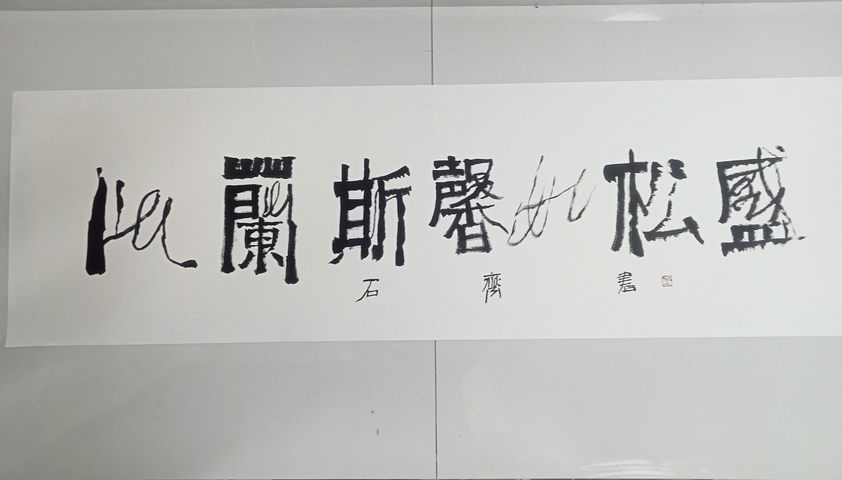 似蘭斯馨如松盛
石齊書